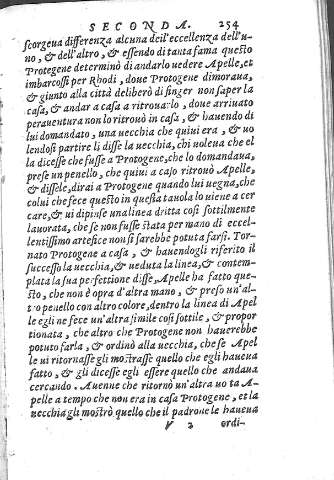 SECONDA. 254
scorgeua differenza alcuna dell'eccellenza dell'u-
no, & dell'altro, & essendo di tanta fama questo
Protegene determinò di andarlo uedere Apelle, et
imbarcossi per Rhodi, doue Protogene dimoraua,
& giunto alla città deliberò di finger non saper la
casa, & andar a casa a ritrouarlo, doue arriuato
perauentura non lo ritrouò in casa, & hauendo di
lui domandato, una uecchia che quiui era, & uo
lendosi partire li disse la uecchia, chi uoleua che el
la dicesse che fusse a Protogene, che lo domandaua,
prese un penello, che quiui a caso ritrouò Apelle,
& dissele, dirai a Protogene quando lui uegna, che
colui che fece questo in questa tauola lo uiene a cer
care, & ui dipinse una linea dritta così sottilmente
lauorata, che se non fusse stata per mano di eccel-
lentissimo artefice non si sarebbe potuta farsi. Tor-
nato Protogene a casa, & hauendogli riferito il
successo la uecchia, & ueduta la linea, & contem-
plata la sua perfettione disse, Apelle ha fatto que-
sto, che non è opra d'altra mano, & preso un'al-
tro penello con altro colore, dentro la linea di Apel
le egli ne fece un'altra simile così sottile, & propor
tionata, che altro che Protogene non hauerebbe
potuto farla, & ordinò alla uecchia, che se Apel
le ui ritornasse gli mostrasse quello che egli haueua
fatto, & gli dicesse egli essere quello che andaua
cercando. Auenne che ritornò un'altra uolta A-
pelle a tempo che non era in casa Protogene, et la
uecchia gli mostrò quello che il padrone le haueua
V 2 ordi-